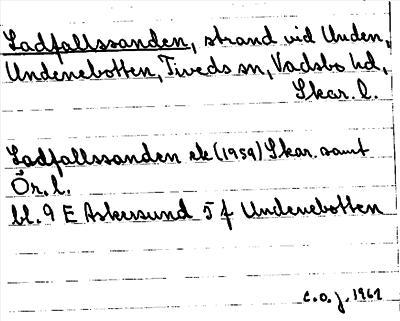 Ladfallssanden, strand vid Unden,
Undenebotten, Tiveds sn, Vadsbo hd,
Skar. l.
Ladfallssanden ek (1959) Skar. samt
Ör. l.
bl. 9 E Askersund 5 f Undenebotten
C.O.J. 1961